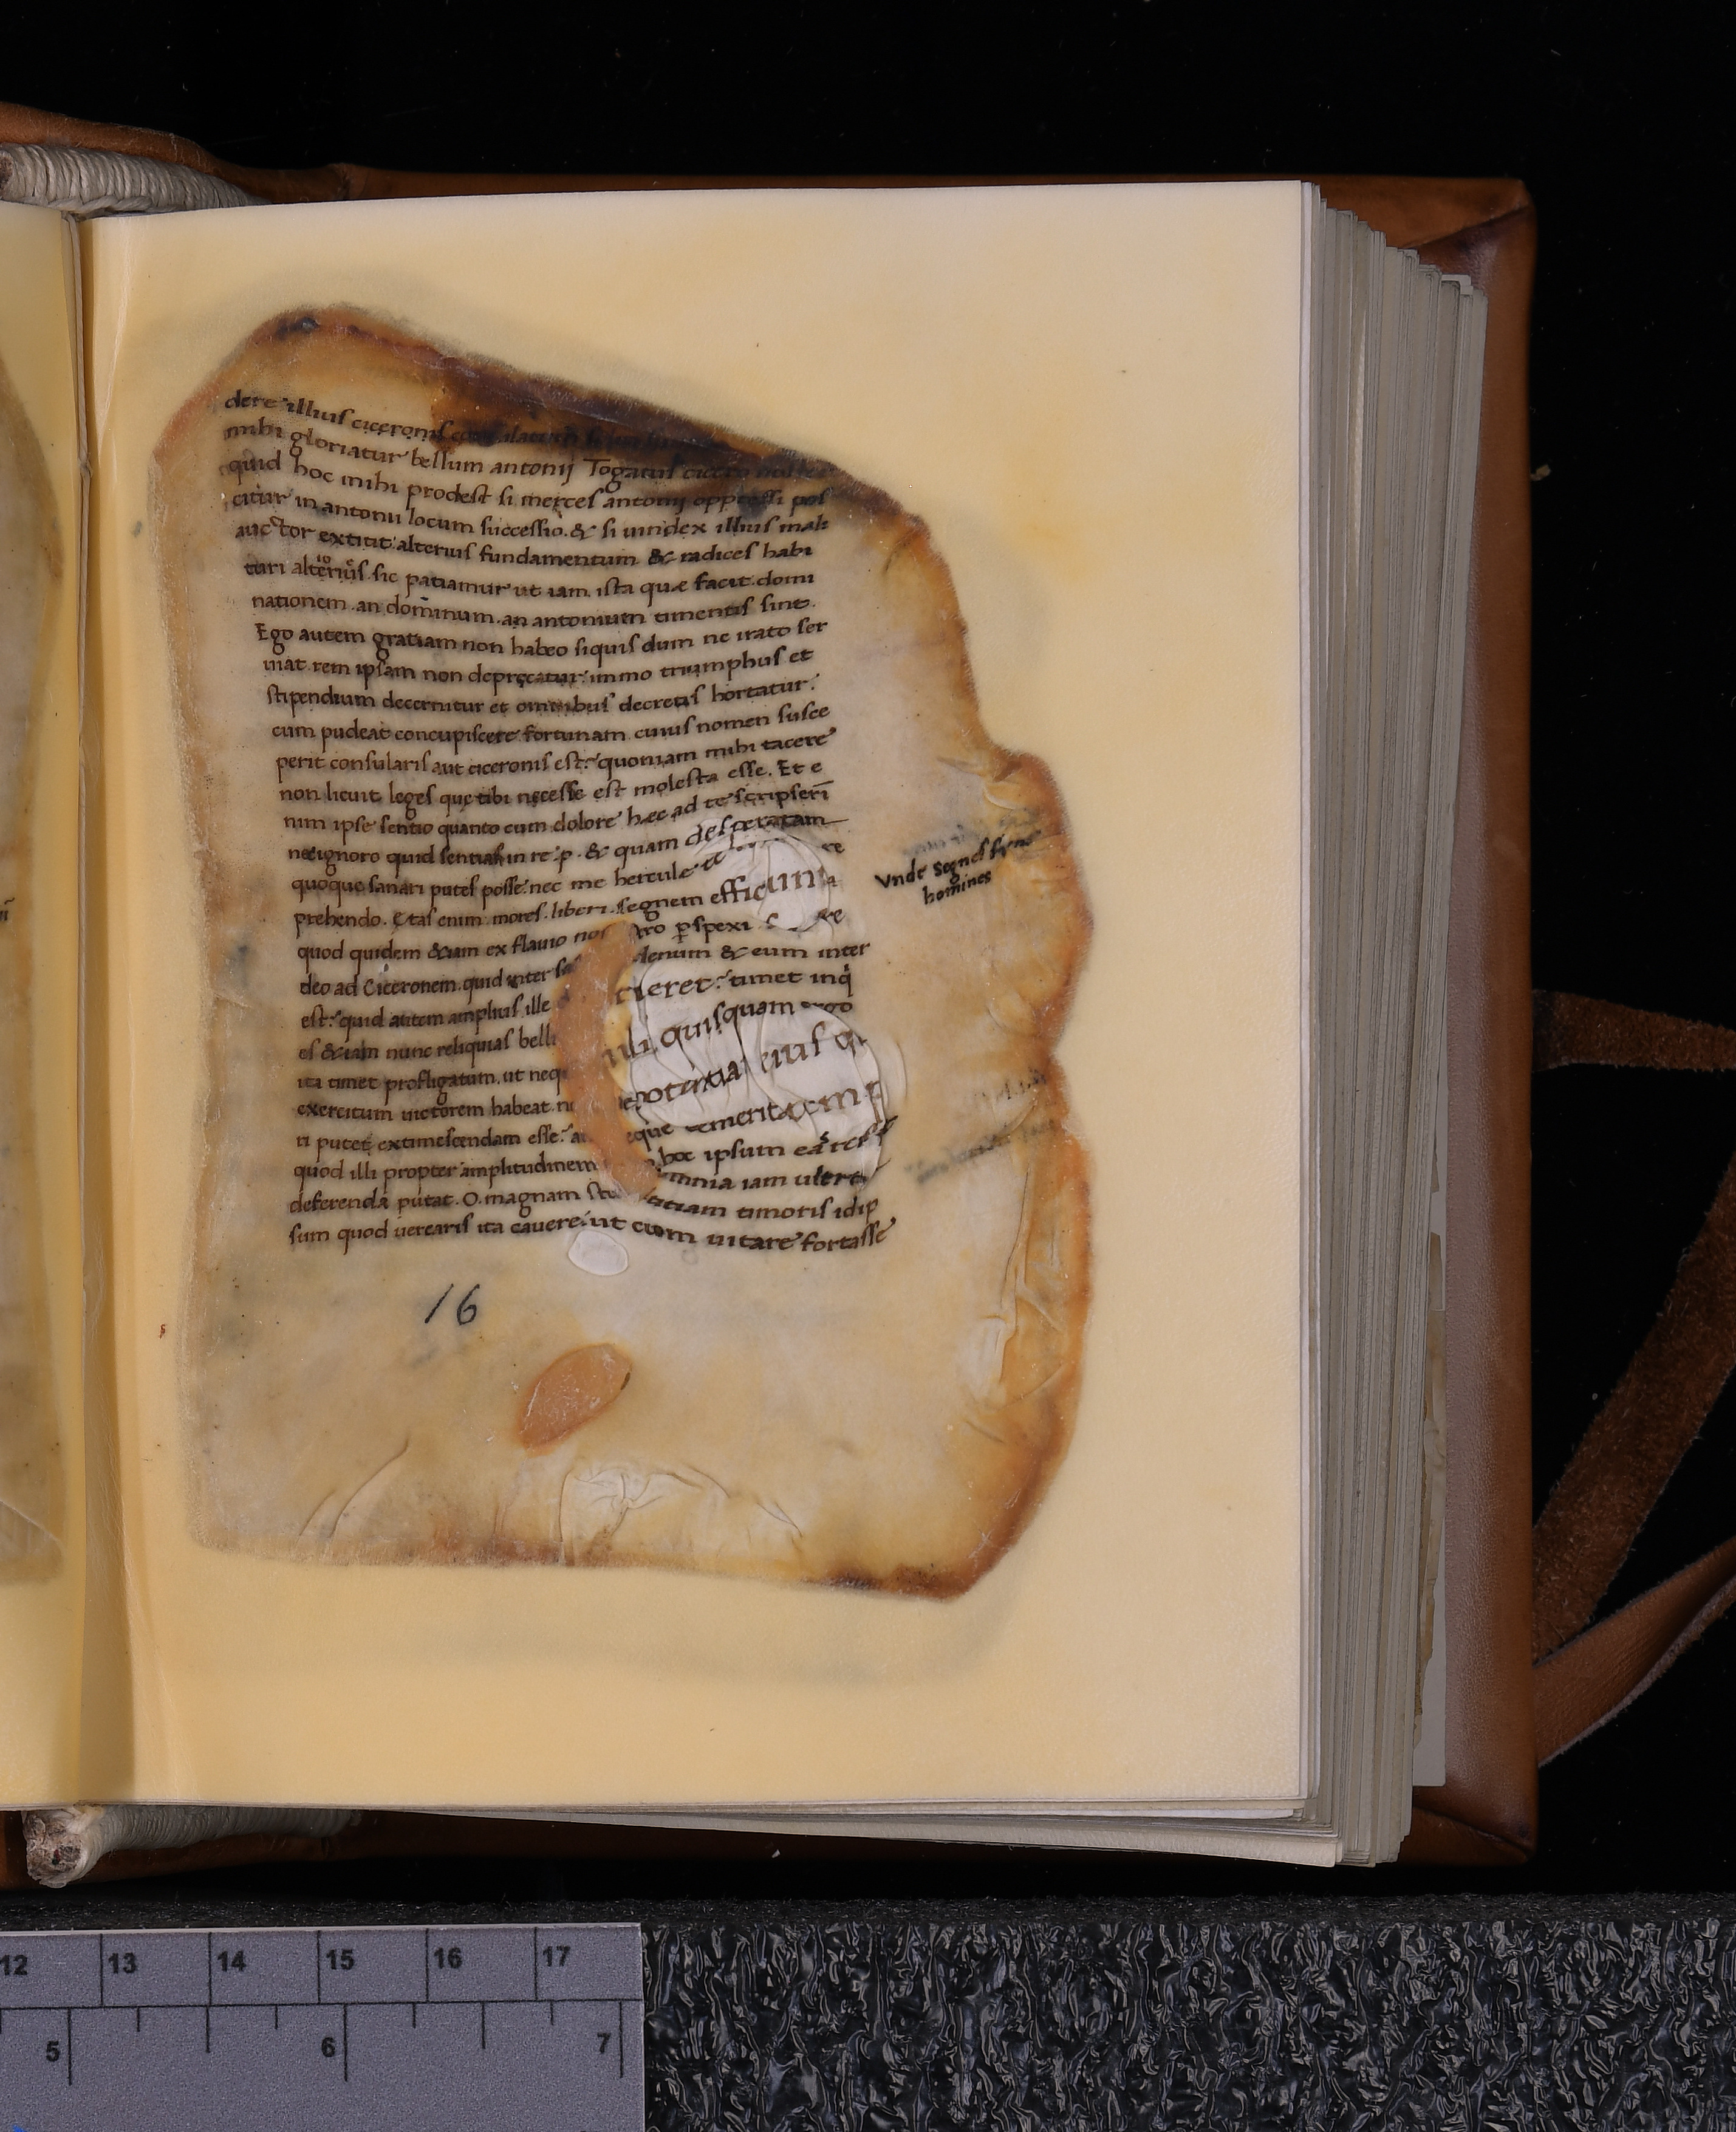 dere illius ciceronis
mihi gloriatur bellum antonij Togatus cicero
quid hoc mihi prodest si merces antonij oppressi pos
citur in antonii locum successio. & si uindex illius mali
auctor extitit alterius fundamentum & radices habi
turi alterius. sic patiamur ut iam ista quae facit. domi
nationem. an dominum. an antonium timentis sint.
Ego autem gratiam non habeo siquis dum ne irato ser
uiat rem ipsam non deprecatur immo triumphus et
stipendium decernitur et omnibus decretis hortatur.
cum pudeat concupiscere fortunam cuius nomen susce
perit consularis aut ciceronis est. quoniam mihi tacere
non licuit. leges que tibi necesse est molesta esse. Et e
nim ipse sentio quanto cum dolore hec ad te scripserī
ne ignoro quid sentias in re .p. & quam desperatam
quoque sanari putes posse. nec me hercule te re
prehendo. Etas enim. mores. liberi. segnem efficiunt
quod quidem &iam ex flauio nostro ꝑspexi re
deo ad Ciceronem. quid inter sal denum & eum inter
est. quid autem amplius ille ceret. timet inq
es &iam nunc reliquias belli uili quisquam ergo
ita timet profligatum. ut neque potentiam eius qui
exercitum uictorem habeat. neque temeritatem
ri putet extimescendam esse. an hoc ipsum
quod illi propter amplitudinem omnia iam ultro
deferenda putat. O. magnam stultitiam timoris idip
sum quod uerearis ita cauere. ut cum uitare fortasse
Vnde segnes
homines
16